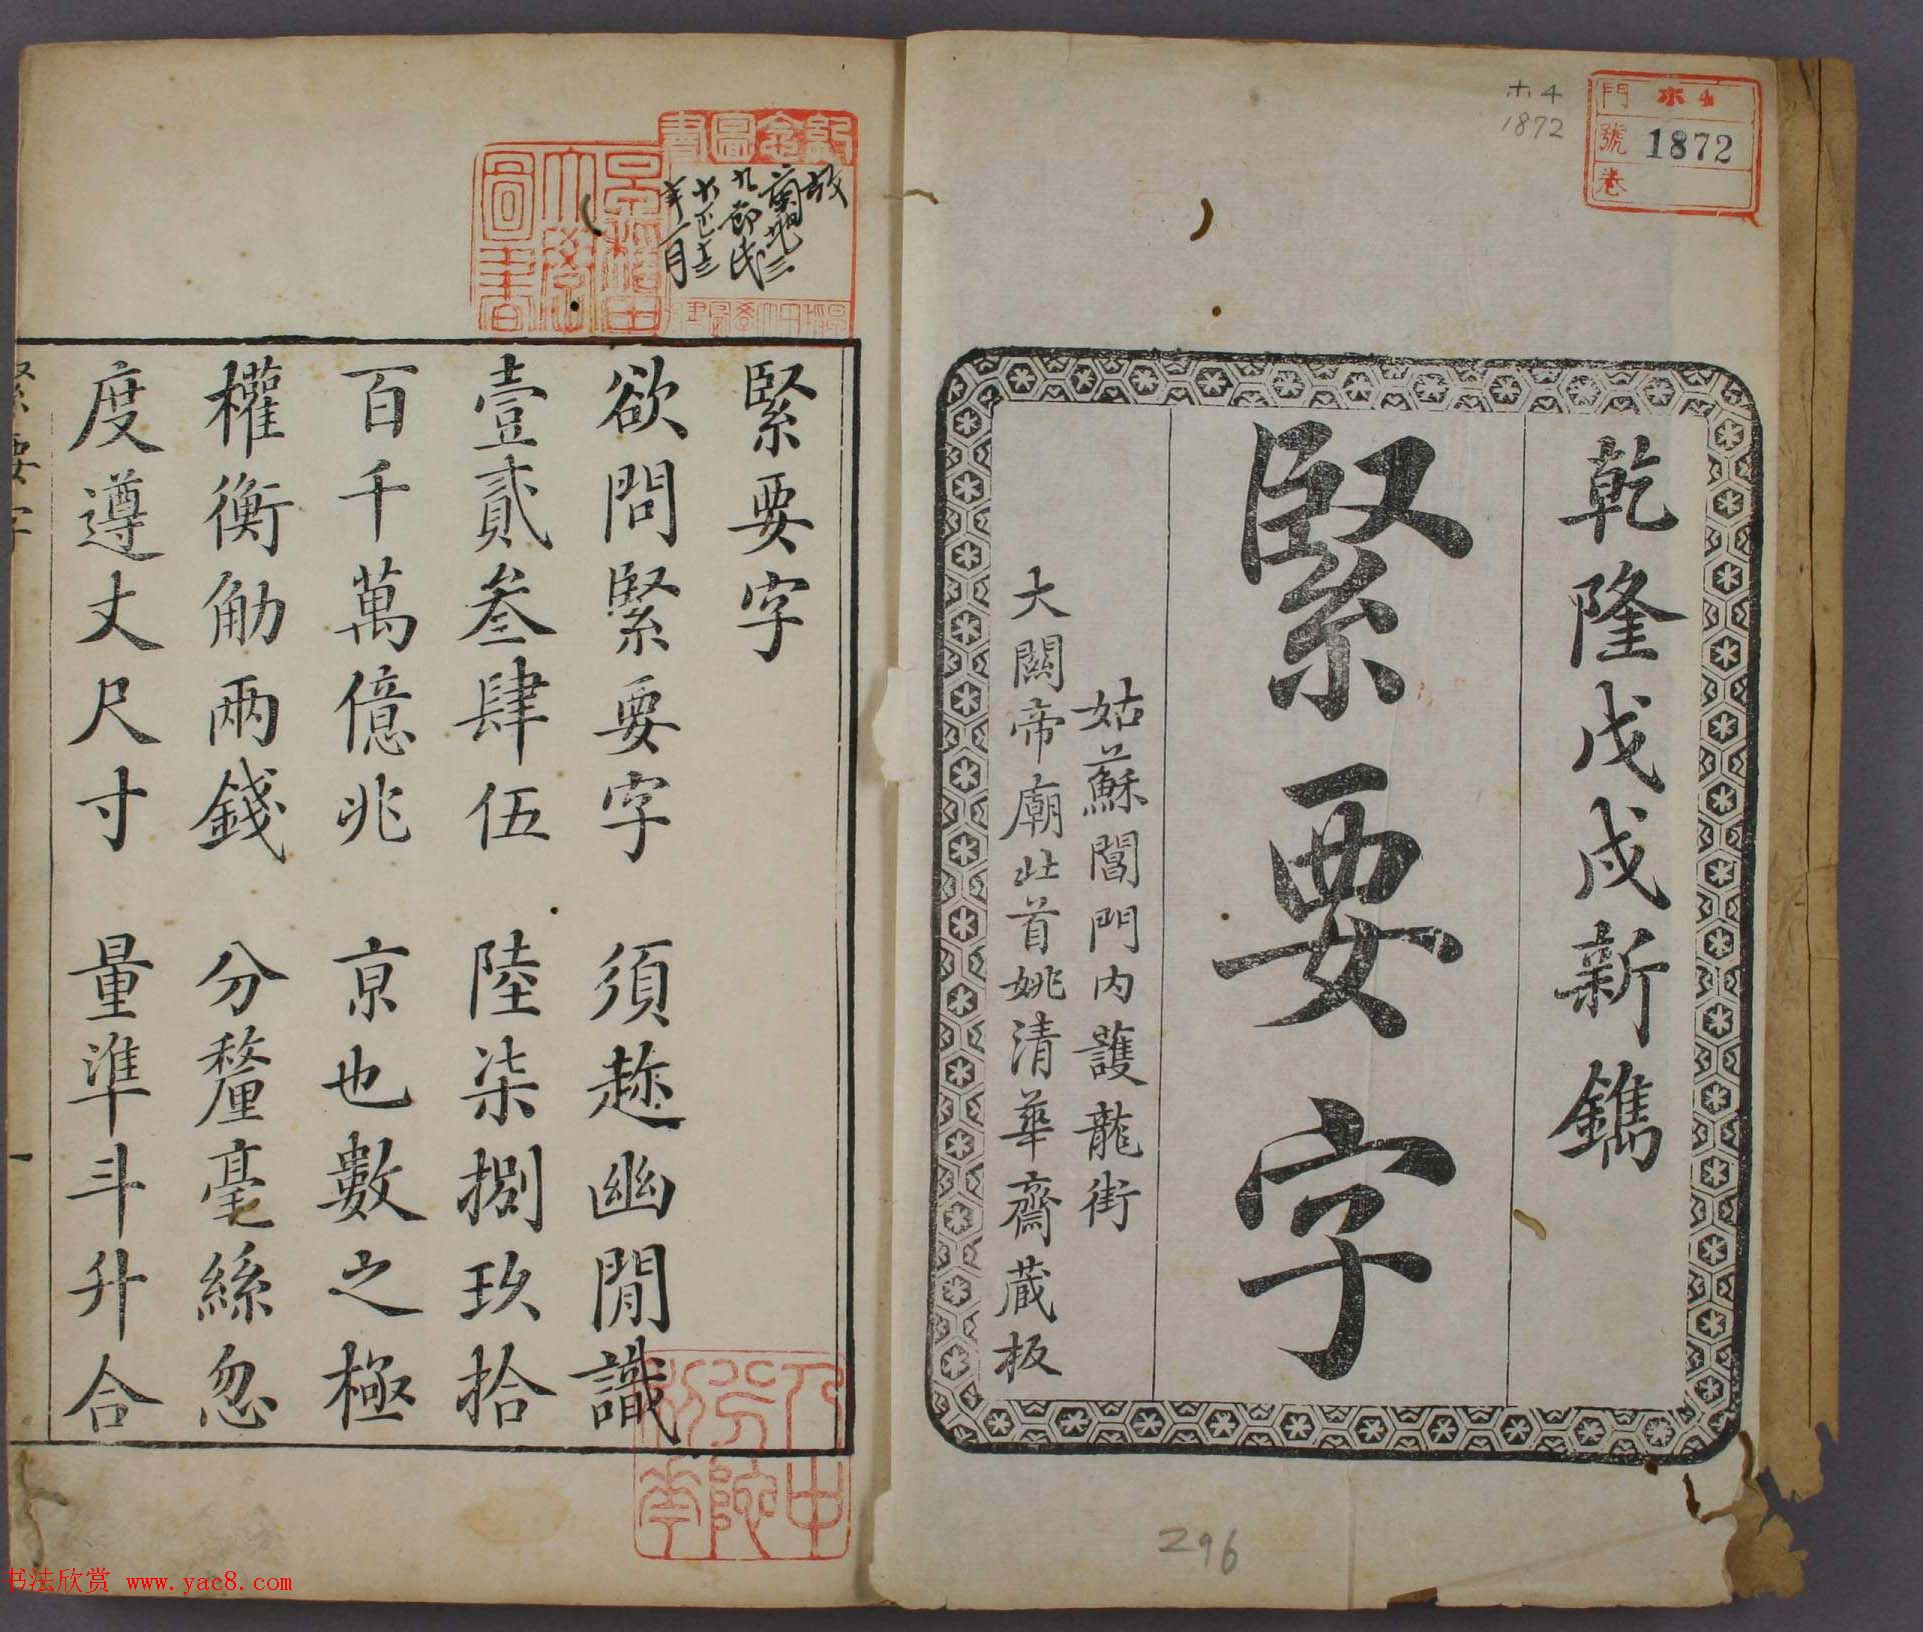 木4
1872
門 木4
號 1872
卷
乾隆戊戌新鐫
緊要字
姑蘇閶門內護龍街
大關帝廟北首姚清華齋藏板
296
緊要字
欲問緊要字 須趂幽閒識
壹貳叁肆伍 陸柒捌玖拾
百千萬億兆 京也數之極
權衡觔兩錢 分釐毫絲忽
度遵丈尺寸 量準斗升合
緊要字
一
故
九郎氏
大正十三
年一月
圖書
書法欣赏 www.yac8.com